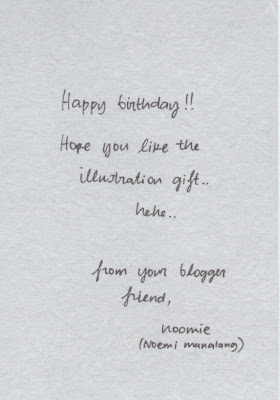 Happy birthday!!
Hope you like the
illustration gift..
hehe..
from your blogger
friend,
noomie
(Noemi manalang)